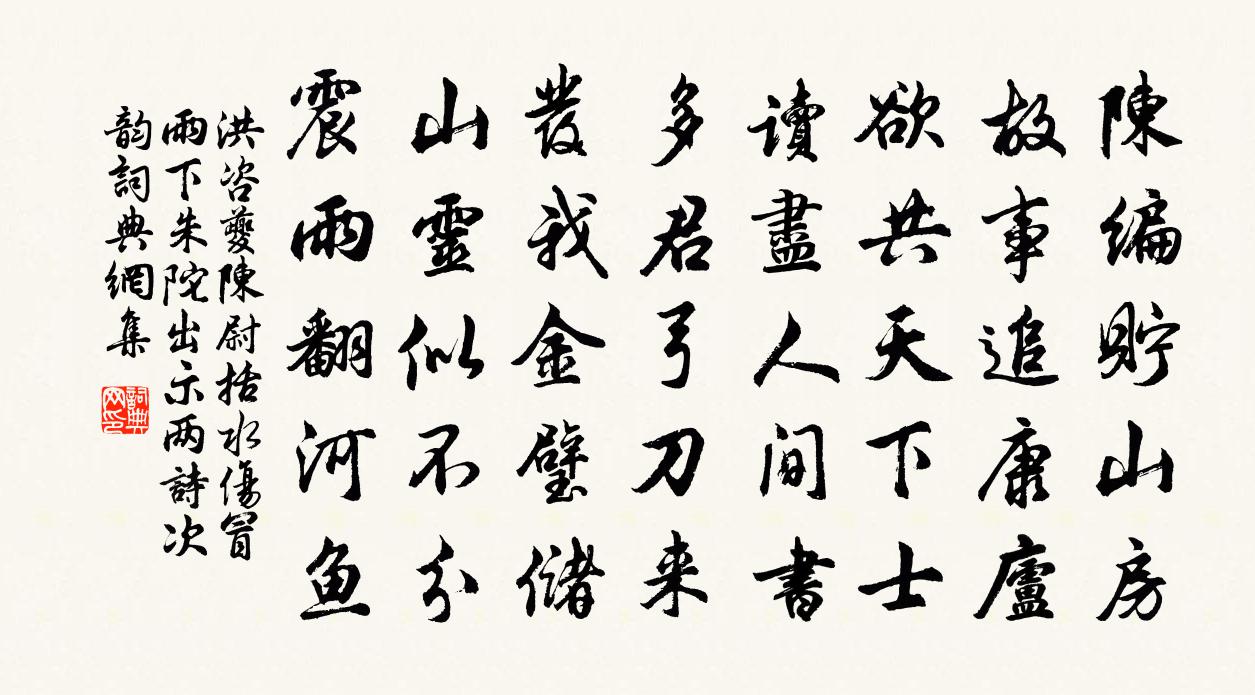 陳編貯山房
故事追康廬
欲共天下士
讀盡人間書
多君弓刀来
發我金璧儲
山靈似不分
震雨翻河魚
洪咨夔陳尉括水傷冒
雨下朱陀出示两詩次
韵詞典網集
詞典网印